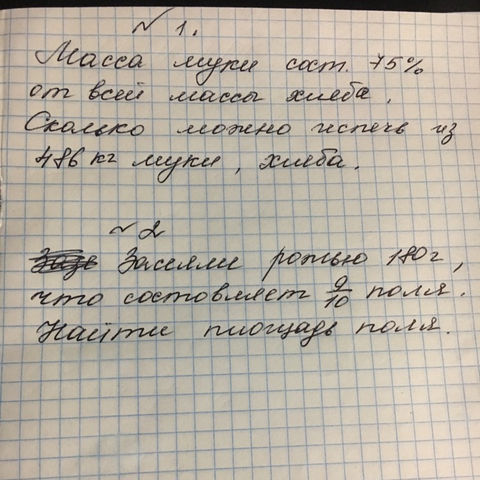 № 1.
Масса муки сост. 75%
от всей массы хлеба.
Сколько можно испечь из
486 кг муки, хлеба.
№ 2
Засеяли рожью 180г,
что состовляет 9/10 поля.
Найти площадь поля.